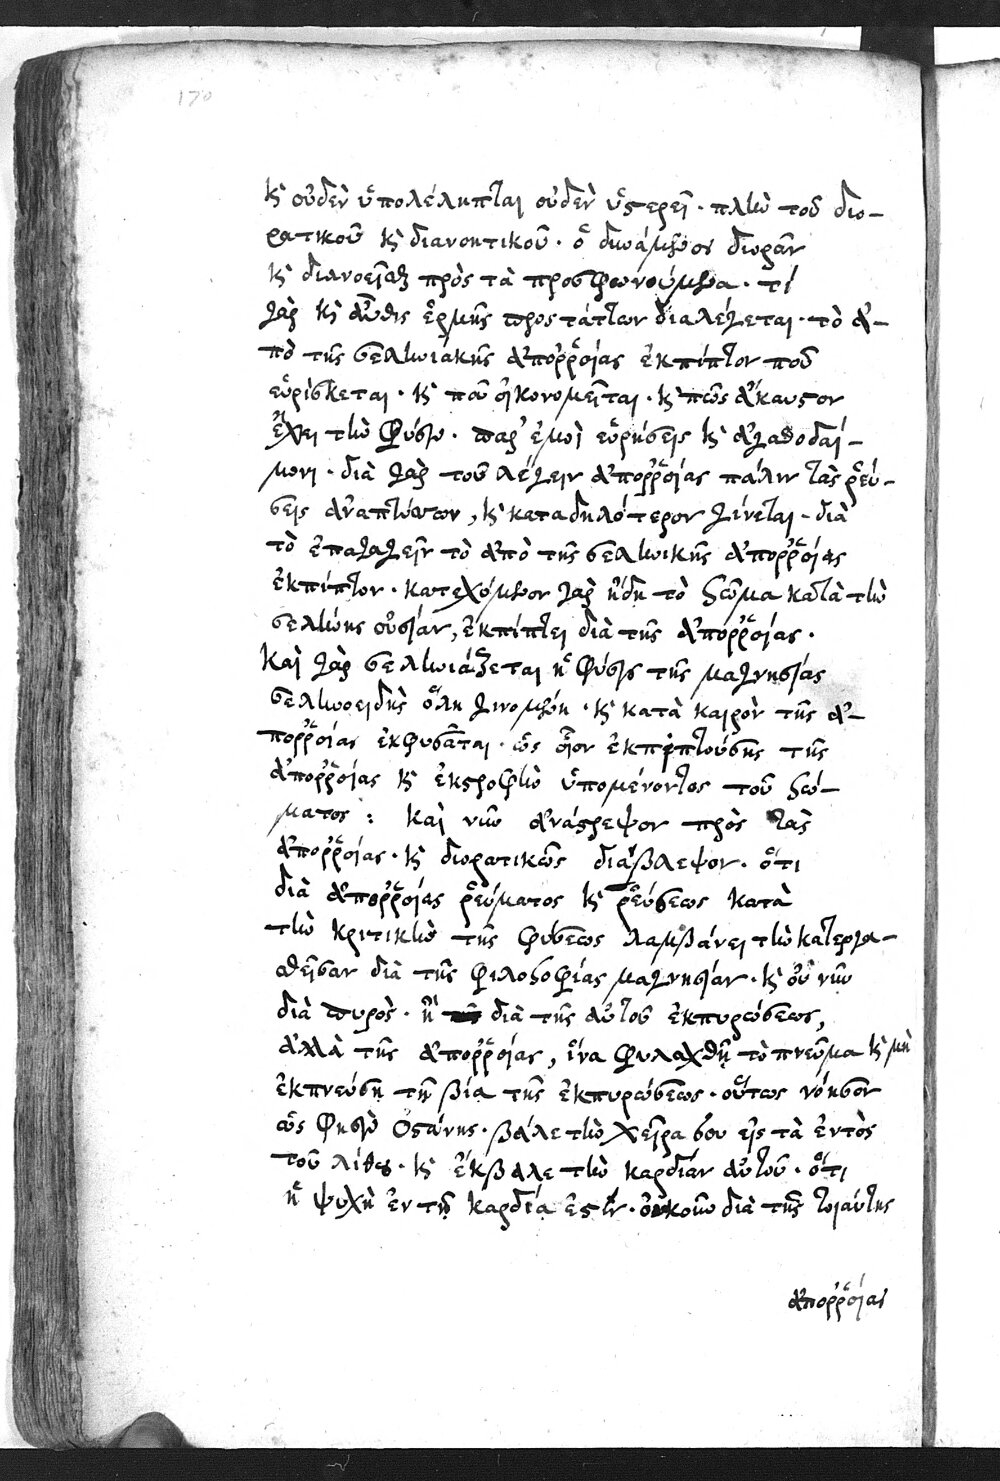 170
κ οὐδὲν ὑπολέλειπται οὐδὲν ὑστερεῖ · πλὴν τοῦ διο-
ρατικοῦ κ διανοητικοῦ · ὁ δυνάμενος διορᾶν
κ διανοεῖσθαι πρὸς τὰ προσφωνούμενα · τί
γὰρ κ αὖθις ἑρμῆς προστάττων διαλέγεται · τὸ ἀ-
πὸ τῆς σεληνιάκης ἀπορροίας ἐκπίπτον ποῦ
εὑρίσκεται · κ ποῦ οἰκονομεῖται · κ πῶς ἄκαυστον
ἔχει τὴν φύσιν · παρ' ἐμοὶ εὑρήσεις κ ἀγαθοδαί-
μονι · διὰ γὰρ τοῦ λέγειν ἀπορροίας πάλιν τὰς ῥεύ-
σεις ἀναπτύσσων, κ καταδηλότερον γίνεται · διὰ
τὸ ἐπαγαγεῖν τὸ ἀπὸ τῆς σεληνικῆς ἀπορροίας
ἐκπίπτον · κατεχόμενον γὰρ ἤδη τὸ σῶμα κατὰ τὴν
σελήνης οὐσίαν, ἐκπίπτει διὰ τῆς ἀπορροίας ·
Καὶ γὰρ σεληνιάζεται ἡ φύσις τῆς μαγνησίας
σεληνοειδὴς ὅλη γινομένη · κ κατὰ καιρὸν τῆς ἀ-
πορροίας ἐκφυσᾶται · ὡς οἷον ἐκπιπτούσης τῆς
ἀπορροίας κ ἐκστροφὴν ὑπομένοντος τοῦ σώ-
ματος : Καὶ νῦν ἀνάστρεψον πρὸς τὰς
ἀπορροίας · κ διορατικῶς διάβλεψον · ὅτι
διὰ ἀπορροίας ῥεύματος κ ῥεύσεως κατὰ
τὴν κριτικὴν τῆς φύσεως λαμβάνει τὴν κατεργα-
σθεῖσαν διὰ τῆς φιλοσοφίας μαγνησίαν · κ οὐ νῦν
διὰ πυρὸς · ἢ διὰ τῆς αὐτοῦ ἐκπυρώσεως,
ἀλλὰ τῆς ἀπορροίας, ἵνα φυλαχθῇ τὸ πνεῦμα κ μὴ
ἐκπνεύσῃ τῇ βίᾳ τῆς ἐκπυρώσεως · οὕτως νόησον
ὡς φησὶν Ὀστάνης · βάλε τὴν χεῖρα σου εἰς τὰ ἐντὸς
τοῦ λίθου · κ ἔκβαλε τὴν καρδίαν αὐτοῦ · ὅτι
ἡ ψυχὴ ἐν τῇ καρδίᾳ ἐστίν · οὐκοῦν διὰ τῆς τοιαύτης
ἀπορροίας